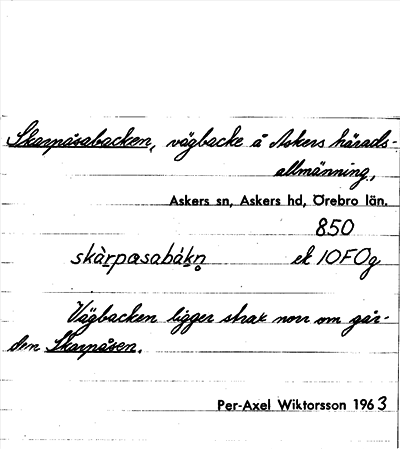 Skarpåsabacken, vägbacke å Askers härads-
allmänning,
Askers sn, Askers hd, Örebro län.
850
skàrpasabákn̥ ek 10F0g
Vägbacken ligger strax norr om går-
den Skarpåsen.
Per-Axel Wiktorsson 1963